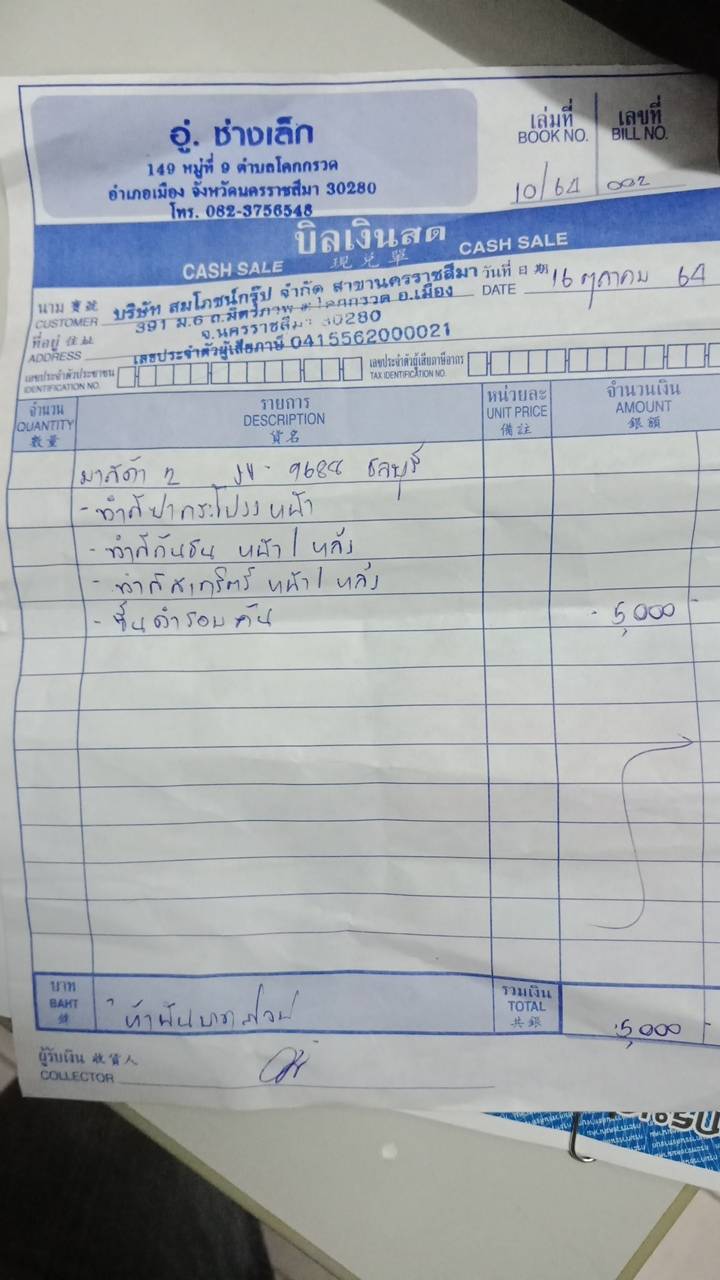 อู่. ช่างเล็ก
149 หมู่ที่ 9 ตำบลโคกกรวด
อำเภอเมือง จังหวัดนครราชสีมา 30280
โทร. 082-3756548
เล่มที่ เลขที่
BOOK NO. BILL NO.
10/64 002
บิลเงินสด
CASH SALE 現兌單 CASH SALE
นาม 寶號 บริษัท สมโภชน์กรุ๊ป จำกัด สาขานครราชสีมา วันที่ 日期 16 ตุลาคม 64
CUSTOMER 391 ม.6 ถ.มิตรภาพ ต.โคกกรวด อ.เมือง DATE
ที่อยู่ 住址 จ.นครราชสีมา 30280
ADDRESS เลขประจำตัวผู้เสียภาษี 0415562000021
เลขประจำตัวประชาชน เลขประจำตัวผู้เสียภาษีอากร
IDENTIFICATION NO. TAX IDENTIFICATION NO.
จำนวน รายการ หน่วยละ จำนวนเงิน
QUANTITY DESCRIPTION UNIT PRICE AMOUNT
數量 貨名 備註 銀額
มาสด้า 2 9688 ชลบุรี
- ทำสีฝากระโปรงหน้า
- ทำสีกันชน หน้า / หลัง
- ทำสีสเกิร์ต หน้า / หลัง
- รอบคัน 5,000 -
บาท รวมเงิน
BAHT ห้าพันบาทถ้วน TOTAL 5,000 -
銖 共銀
ผู้รับเงิน 收貨人
COLLECTOR